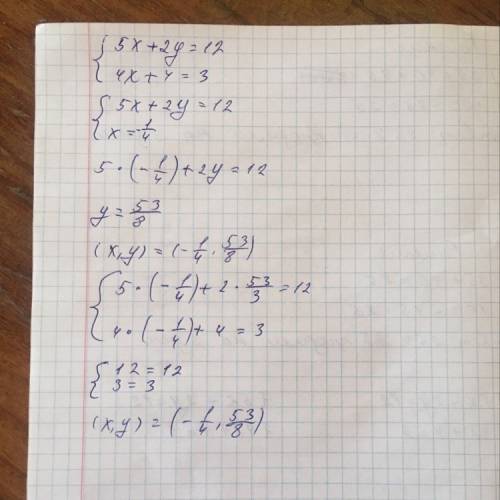 { 5x+2y=12
4x+4=3
{ 5x+2y=12
x=-1/4
5·(-1/4)+2y=12
y=53/8
(x,y)=(-1/4,53/8)
{ 5·(-1/4)+2·53/3=12
4·(-1/4)+4=3
{ 12=12
3=3
(x,y)=(-1/4,53/8)